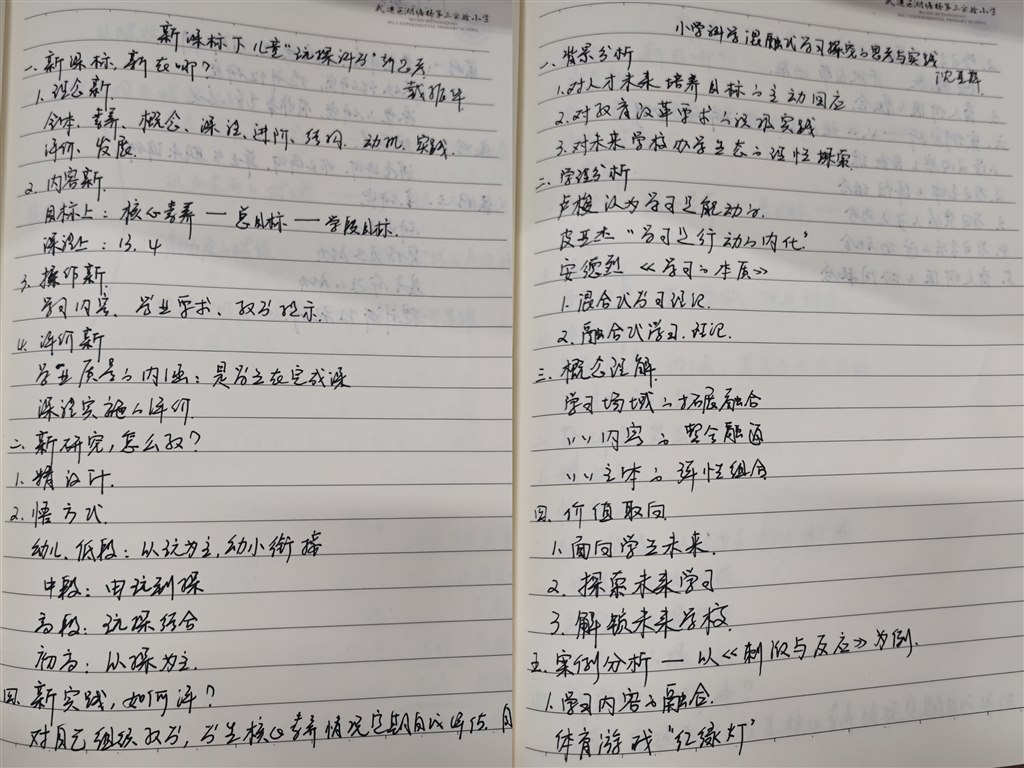 武进区湖塘桥第三实验小学
新课标下儿童“玩探科学”新思考
戴振华
一、新课标，新在哪？
1. 理念新
全体、素养、概念、深浅、进阶、结构、动机、实践、
评价、发展
2. 内容新
目标上：核心素养—总目标—学段目标
课注上：13. 4
3. 操作新
学习内容、学业要求、教学提示
4. 评价新
学业质量的内涵：是学生在完成课
课程实施的评价
二、新研究，怎么教？
1. 精设计
2. 悟方式
幼儿、低段：以玩为主，幼小衔接
中段：由玩到探
高段：玩探结合
初高：以探为主
四、新实践，如何评？
对自己组织教学，学生核心素养情况定期自我评估，自
武进区湖塘桥第三实验小学
小学科学混融式学习探究的思考与实践
一、背景分析
1. 对人才未来培养目标的主动回应
2. 对教育改革要求的
实践
3. 对未来学校办学生态的
探索
二、学理分析
卢梭认为学习是能动的
皮亚杰“学习是行动的内化”
安德烈《学习的本质》
1. 混合式学习理论
2. 融合式学习理论
三、概念理解
学习场域的拓展融合
〃〃内容的整合融通
〃〃主体的弹性组合
四、价值取向
1. 面向学生未来
2. 探索未来学习
3. 解锁未来学校
五、案例分析—以《刺激与反应》为例
1. 学习内容的融合
体育游戏“红绿灯”